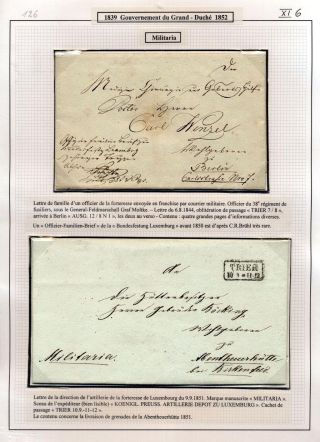 126
1839 Gouvernement du Grand - Duché 1852
XI 6
Militaria
Herrn
Carl Wenzel
Wohlgeboren
Berlin
Lettre de famille d'un officier de la forteresse envoyée en franchise par courrier militaire. Officier du 38e régiment de
fusiliers, sous le General-Feldmarschall Graf Moltke. – Lettre du 6.8.1844, oblitération de passage « TRIER 7 / 8 »,
arrivée à Berlin « AUSG. 12 / 8 N I », les deux au verso – Contenu : quatre grandes pages d'informations diverses.
Un « Officier-Familien-Brief » de la « Bundesfestung Luxemburg » avant 1850 est d'après C.R.Brühl très rare.
An
TRIER
10 9 11-12
den Hüttenbesitzer
Herrn Gebrüder Böcking
Wohlgeboren
Militaria.
zu Abentheuerhütte
bei Birkenfeld
Lettre de la direction d'artillerie de la forteresse de Luxembourg du 9.9.1851. Marque manuscrite « MILITARIA ».
Sceau de l'expéditeur (bien lisible) « KOENIGL. PREUSS. ARTILLERIE DEPOT ZU LUXEMBURG ». Cachet de
passage « TRIER 10.9.-11-12 ».
Le contenu concerne la livraison de grenades de la Abentheuerhütte 1851.